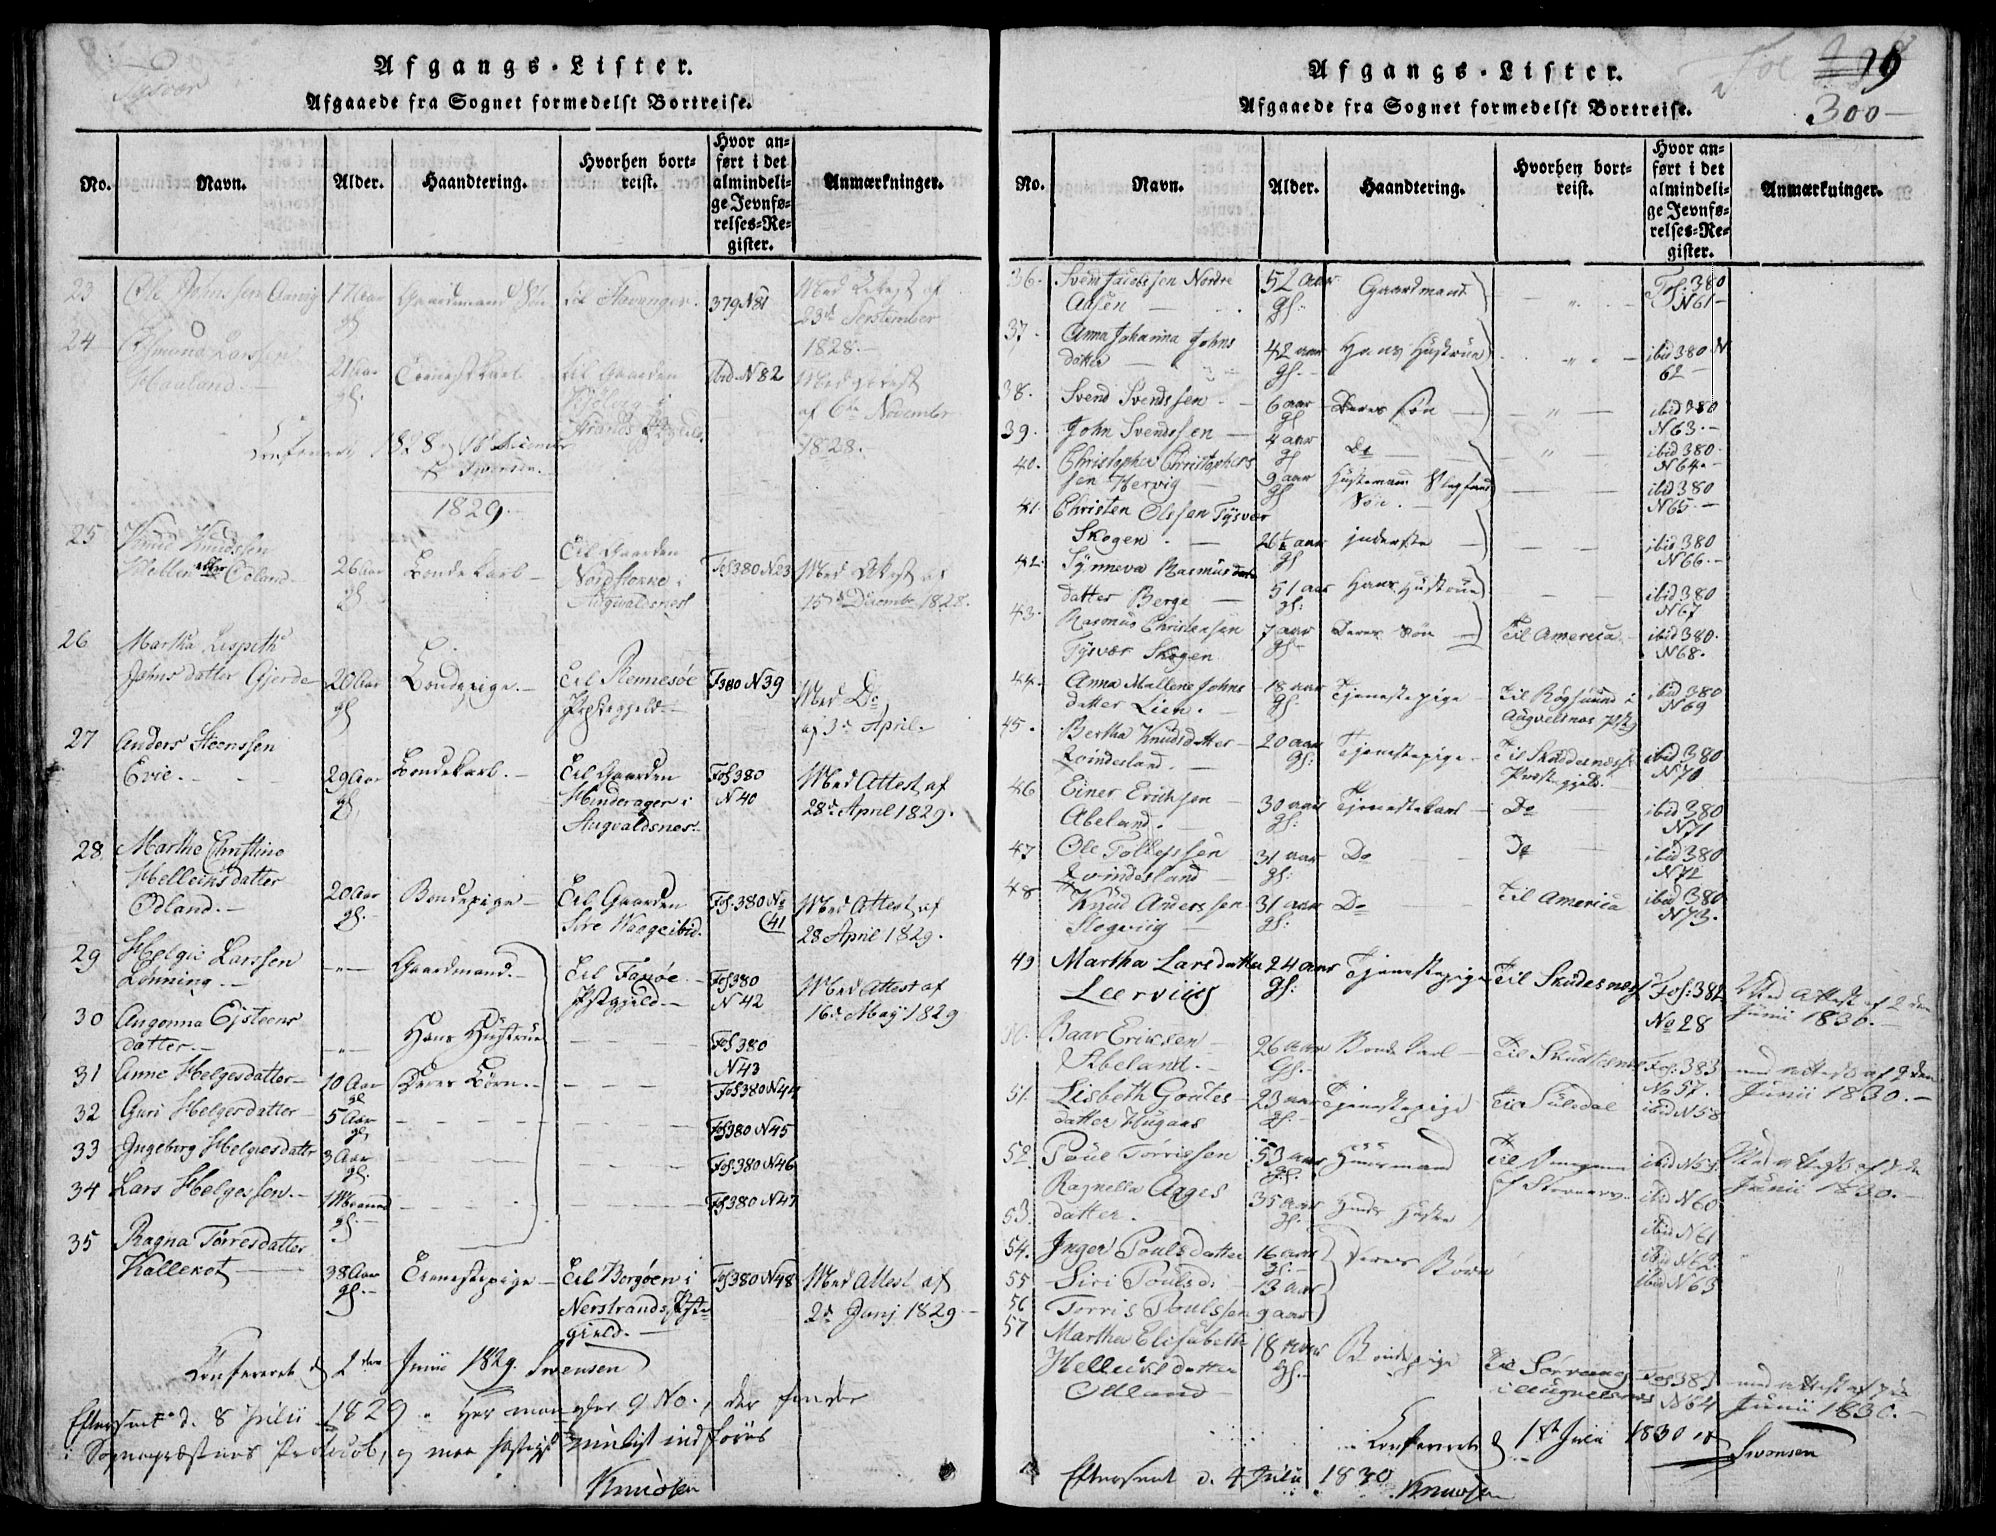 Tysvær
Afgangs-Lister.
Afgaaede fra Sognet formedelst Bortreise.
No. Navn. Alder. Haandtering. Hvorhen bortreist. Hvor anført i det almindelige Jevnførelses-Register. Anmærkninger.
23 Ole Johnssen Aarvig 17 Aar gl Gaardmand Søn til Stavanger. 379 N81 Med Attest af
23de September
1828.
24 Asmund Larssen
Haaland. 21 Aar gl. Tienestkarl til Gaarden ibid N82 Med Attest
Strands af 6te November
1828.
Confereret 1828 16 December
Svensen.
1829.
25 Knud Knudssen
eller Ödland. 26 Aar gl Bondekarl Til Gaarden
Nordstokke i
Augvaldsnes Fol 380 N23 Med Attest af
15de Decembr 1828.
26 Martha Lispeth
Johnsdatter Gjerde 20 Aar gl Bondepige. Til Rennesöe
Præstegjeld. F380 N39 Med Do
af 3de April.
27 Anders Steenssen
Evie. 29 Aar gl. Bondekarl. Til Gaarden
Hinderager i
Augvaldsnes. Fol 380
N40 Med Attest af
28de April 1829.
28 Marthe Christine
Helleiksdatter
Odland. 20 Aar gl. Bondepige Til Gaarden
Sire Waage ibid. Fol. 380 No
41 Med Attest af
28 April 1829.
29 Helgie Larssen
Lönning. " Gaardmand. Til Fanöe
Pstgjeld. Fol 380
N42 Med Attest af
16de May 1829
30 Angonna Ejsteens
datter. " Hans Hustrue Fol 380
N43
31 Anne Helgesdatter 10 Aar gl Deres Börn. Fol 380 N44
32 Guri Helgesdatter 5 Aar gl. Fol 380 N45
33 Ingeborg Helgiesdatter 3 Aar gl. Fol 380 N46
34 Lars Helgessen. 1 Maaned gl. Fol 380 N47
35 Ragna Tørresdatter
Kallekot 38 Aar gl. Tienestepige Til Borgöen i
Nerstrands Pste-
gield. Fol 380 N48 Med Attest af
2de Junj 1829
Confereret d 2den Junii 1829. Svensen
Efterseet d. 8 Julii 1829. Her mangler 9 No.,
i Sognepræstens Protocol, og maa hastigst muligt indföres
Knudsen
Fol 298
19
300
Afgangs-Lister.
Afgaaede fra Sognet formedelst Bortreise.
No. Navn. Alder. Haandtering. Hvorhen bortreist. Hvor anført i det almindelige Jevnførelses-Register. Anmærkninger.
36. Svend Jacobssen Nordre
Aasen 52 aar gl: Gaardmand " Fol: 380
N61
37. Anna Johanna Johns
datter 42 aar gl. Hans Hustrue " ibid 380 N
62
38. Svend Svendssen 6 aar gl Deres Søn " ibid 380
N63.
39. John Svendssen 4 aar gl Do " ibid 380.
N64.
40. Christopher Christophers
sen Hervig 9 aar gl Huusmand Søn. ibid 380
N65
41. Christen Olssen Tysvær
Skogen. 26½ aar gl inderste ibid 380
N66.
42. Synneva Rasmus
datter Berge 51 aar gl: Hans Hustrue ibid 380
N67
43. Rasmus Christensen
Tysvær Skogen 7 aar gl. Deres Søn Til America ibid 380.
N68.
44. Anna Mallene Johns
datter Lien. 18 aar gl: Tjenestepige Til Røgsund i
Augvelsnes ibid 380
N69
45. Bertha Knudsdatter
Qvindesland. 20 aar gl: Tjenestepige Til Skudesnæs
Præstegjeld. ibid 380
N70
46 Einer Erichsen
Abeland. 30 aar gl: Tjenestekarl Do ibid 380
N71
47 Ole Tollefssen
Qvindesland 31 aar gl: Do Do ibid 380
N72
48 Knud Anderssen
Slogviig 31 aar gl: Do Til America ibid 380
N73.
49 Martha Larsdatter
Leerviiig 24 aar gl: Tjenestepige Til Skudesnes Fol: 382
No 28 Med Attest af 2 den
Junii 1830.
Baar Eriksen
Abeland. 26 aar gl. Bonde karl Til Skudesnes Fol. 383
No 57. med attest af 2 den
Junii 1830.
51. Lisbeth Goutes
datter Hugaas 23 aar gl. Tjenestepige Til Suledal ibid N58
52. Poul Tørrissen 53 aar gl. Huusmand Til
af ibid N59 Med attest af
Junii 1830.
53. Ragnilla Aages
datter. 35 aar gl. Hands Hustru ibid N60
54. Inger Poulsdatter 16 aar gl. Deres Børn ibid N61
55 Siri Poulsd: 13 aar ibid N62
56 Torris Poulssen 9 aar ibid N63
57 Martha Elisabeth
Helliksdatter
Odland 18 aar gl. Bondepige Til
i Augvelsnes Fol 383
N64 med attest af
Junii 1830.
Confereret d 1ste Julii 1830
Svensen
Efterseet d. 4 Julii 1830. Knudsen